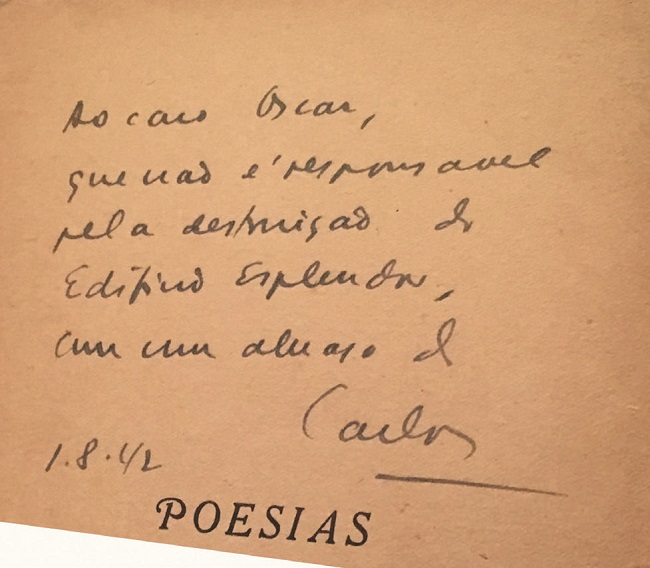 Ao caro Oscar,
que não é responsavel
pela destruição do
Edifício Esplendor,
com um abraço de
Carlos
1.8.42
POESIAS